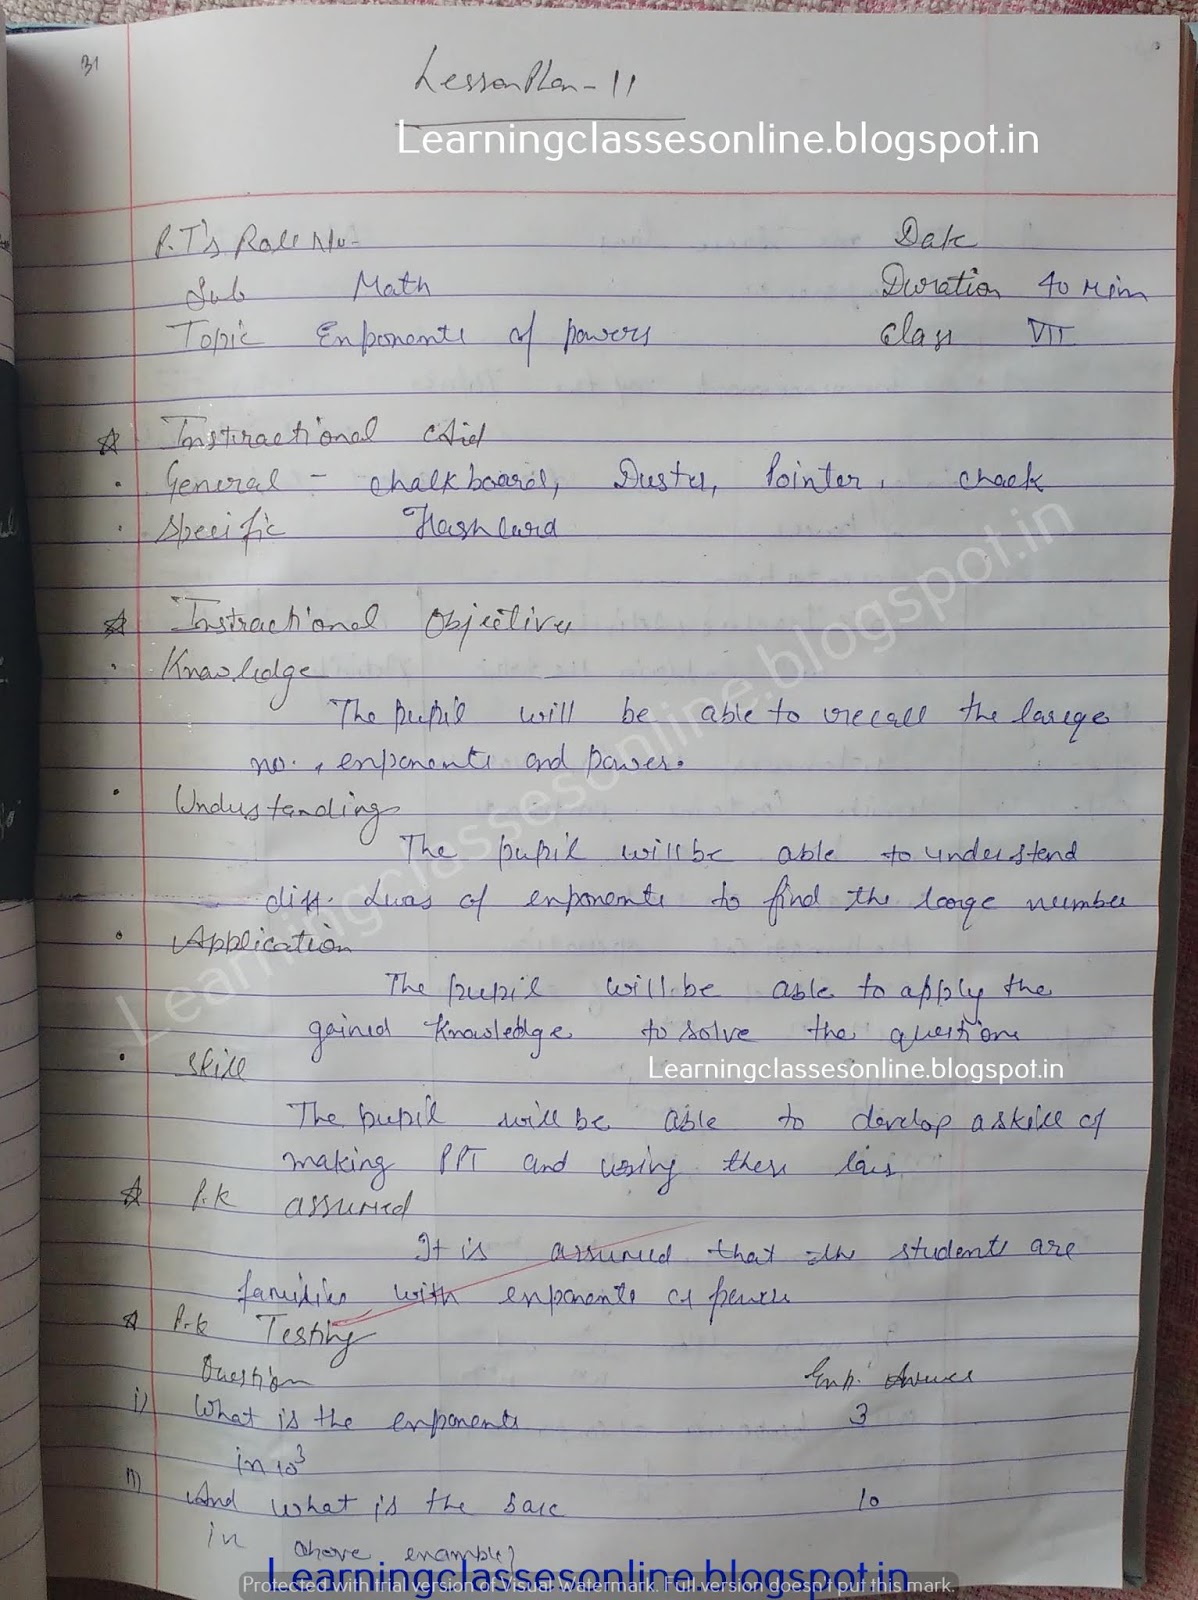 31
Lesson Plan - 11
Learningclassesonline.blogspot.in
P.T's Roll No- Date
Sub Math Duration 40 Min
Topic Exponents of powers Class VII
Instractional Aid
General - chalkboard, Duster, Pointer, chack
Specific Flashcard
Instractional Objectives
Knowledge
The pupil will be able to recall the large
no., exponents and power.
Understanding
The pupil will be able to understand
diff. Laws of exponents to find the large number
Application
The pupil will be able to apply the
gained knowledge to solve the questions
Skill
Learningclassesonline.blogspot.in
The pupil will be able to develop a skill of
making PPT and using these laws
P.K assumed
It is assumed that the students are
familier with exponents of power
P.K Testing
Question Exp. Answer
i) What is the exponents 3
in 10³
ii) And what is the base 10
in above example?
Learningclassesonline.blogspot.in
Protected with trial version of Visual Watermark. Full version doesn't put this mark.
Learningclassesonline.blogspot.in